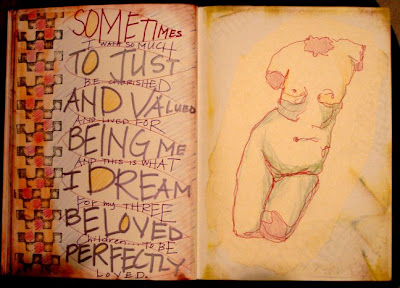 SOMETIMES
I WANT SO MUCH
TO JUST
BE CHERISHED
AND VALUED
AND LOVED FOR
BEING ME
AND THIS IS WHAT
I DREAM
FOR my THREE
BELOVED
children... TO BE
PERFECTLY
LOVED.